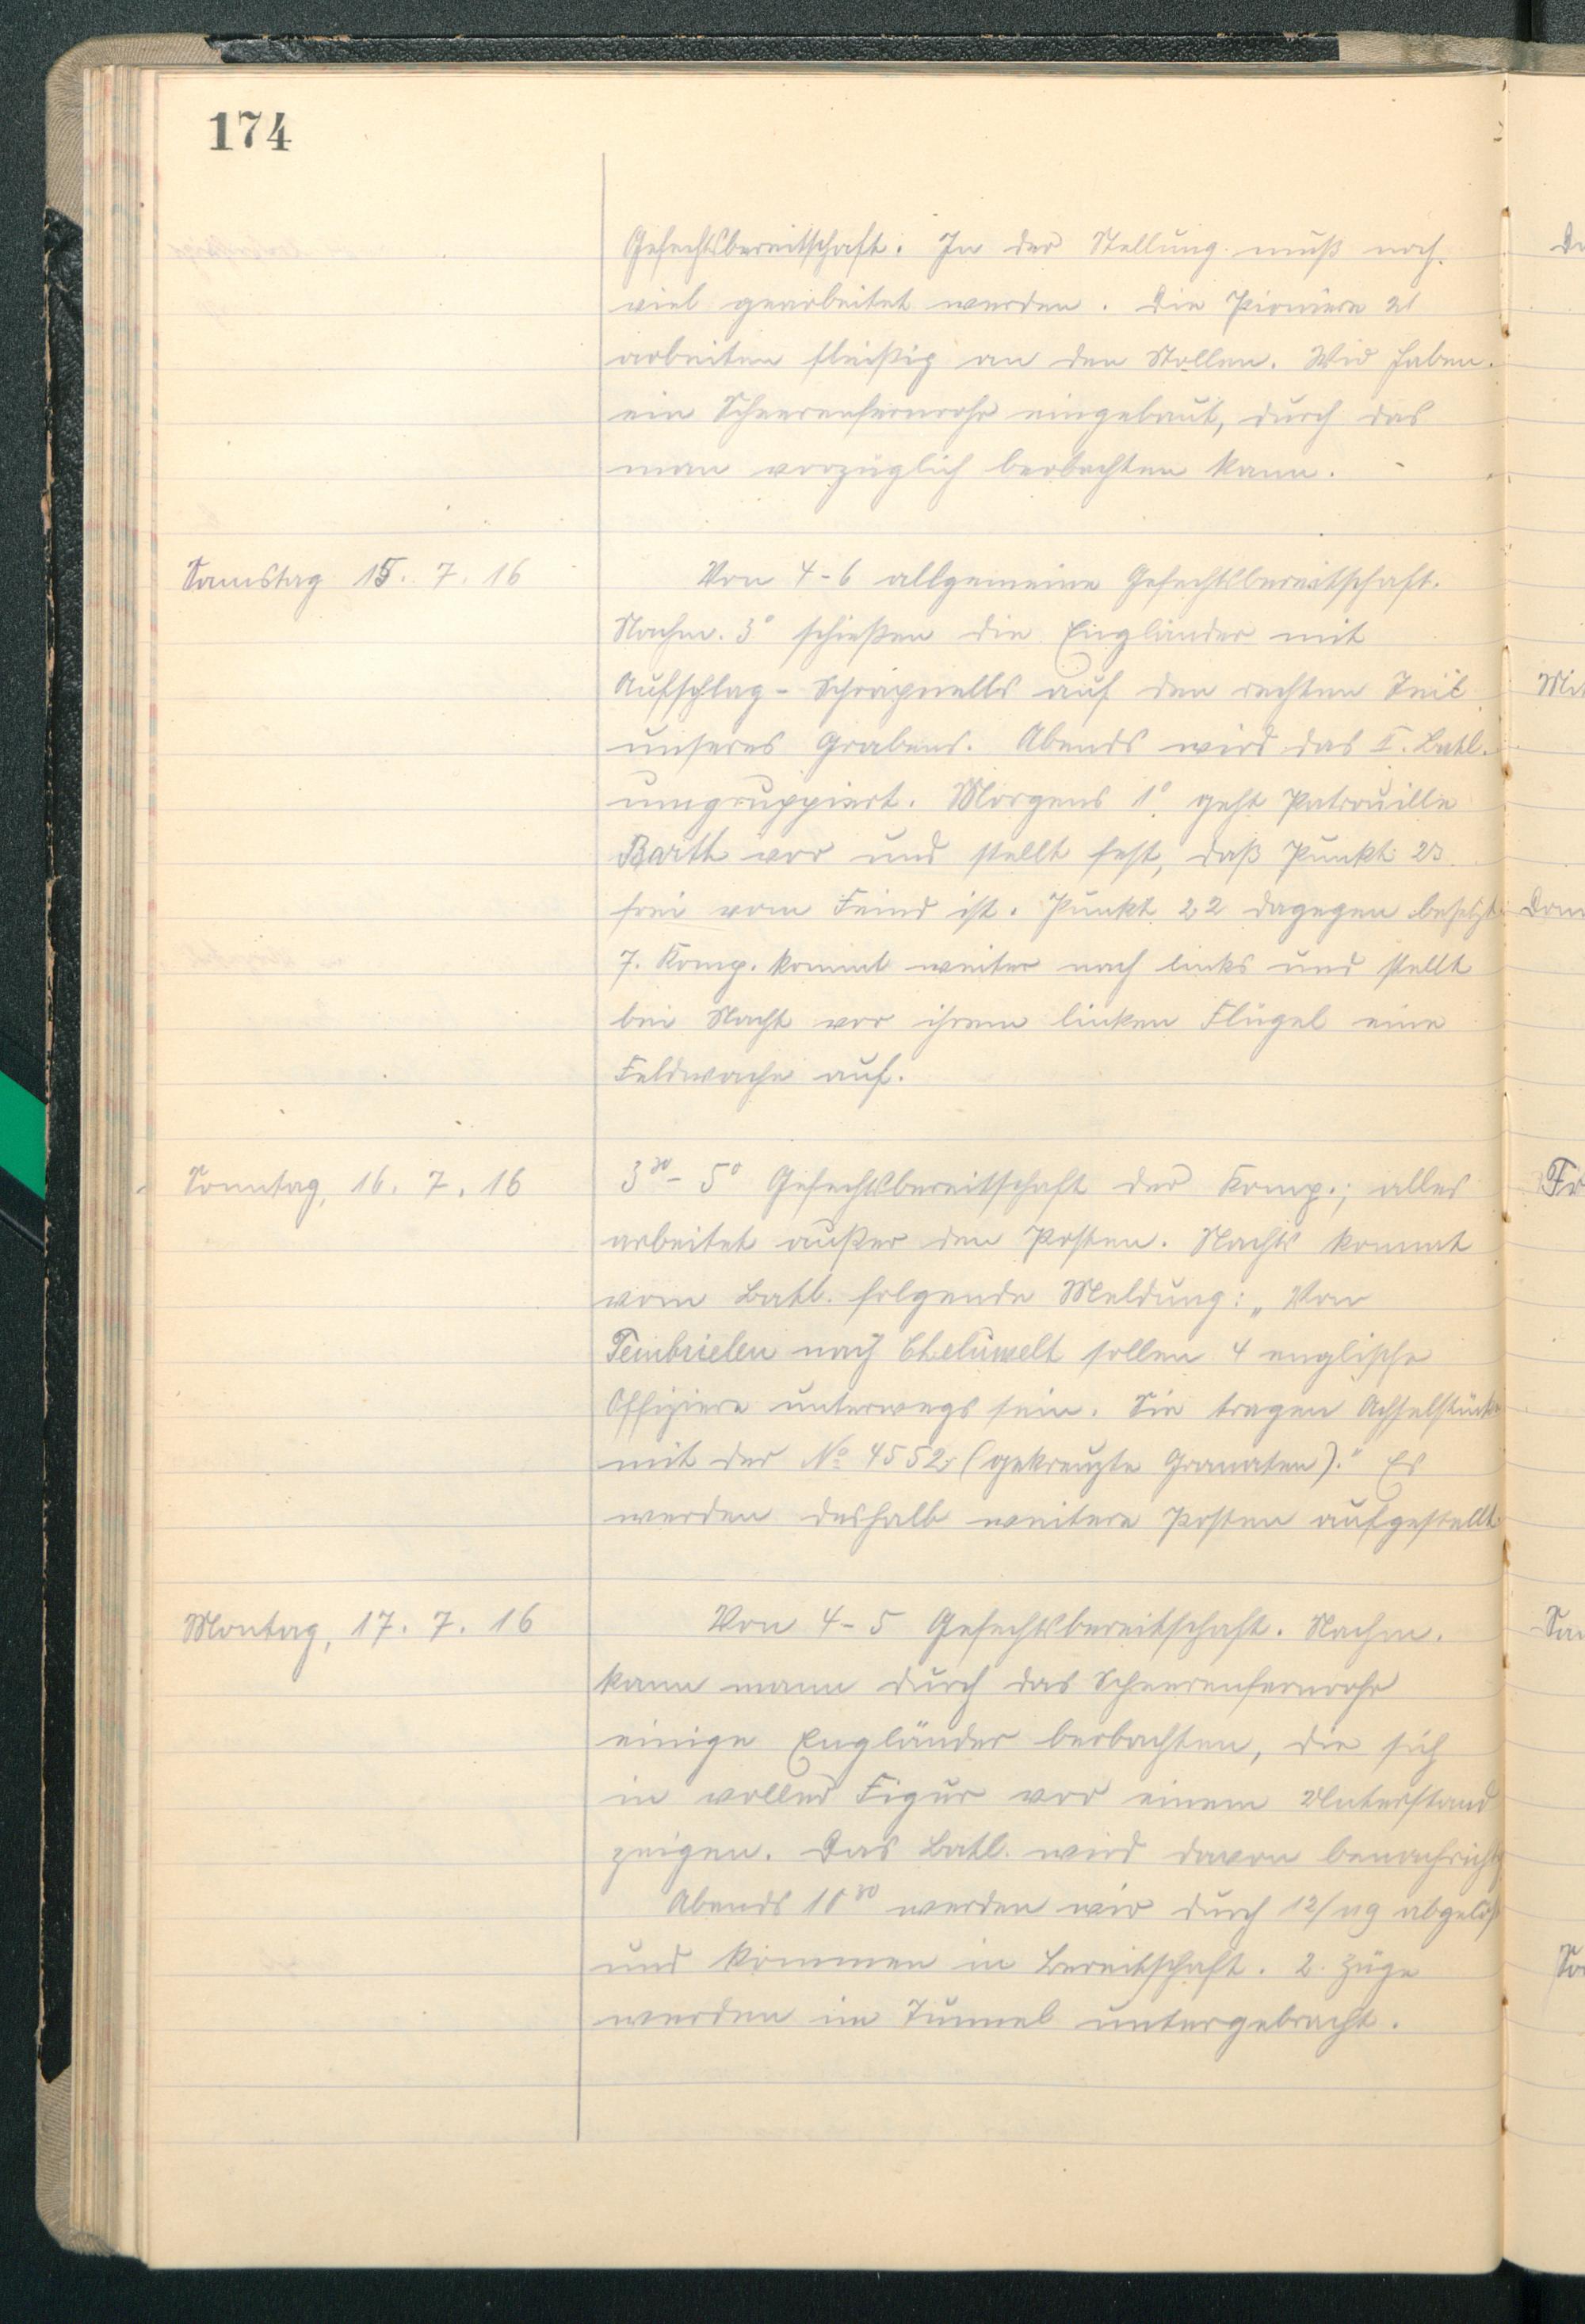 174
Gefechtsbereitschaft. In der Stellung muß noch
viel gearbeitet werden. Die Pioniere 21
arbeiten fleißig an den Stollen. Wir haben
ein Scheerenfernrohr eingebaut, durch das
man vorzüglich beobachten kann.
Samstag 15. 7. 16
Von 4-6 allgemeine Gefechtsbereitschaft.
Nachm. 3° schießen die Engländer mit
Aufschlag-Schrapnells auf den rechten Teil
unseres Grabens. Abends wird das II. Batl.
umgruppiert. Morgens 1° geht Patrouille
Barth vor und stellt fest, daß Punkt 23
frei vom Feind ist. Punkt 22 dagegen besetzt
7. Komp. kommt weiter nach links und stellt
bei Nacht vor ihrem linken Flügel eine
Feldwache auf.
Sonntag, 16. 7. 16
3³⁰- 5° Gefechtsbereitschaft der Komp.; alles
arbeitet außer den Posten. Nachts kommt
vom Batl. folgende Meldung: „Von
Tembrielen nach Cheluwelt sollen 4 englische
Offiziere unterwegs sein. Sie tragen Achselstücke
mit der No 4552 (gekreuzte Granaten)." Es
werden deshalb weitere Posten aufgestellt
Montag, 17. 7. 16
Von 4-5 Gefechtsbereitschaft. Nachm.
kann mann durch das Scheerenfernrohr
einige Engländer beobachten, die sich
in voller Figur vor einem Unterstand
zeigen. Das Batl. wird davon benachrichtg
Abends 10³⁰ werden wir durch 12/119 abgelöst
und kommen in Bereitschaft. 2 Züge
werden im Tunnel untergebracht.